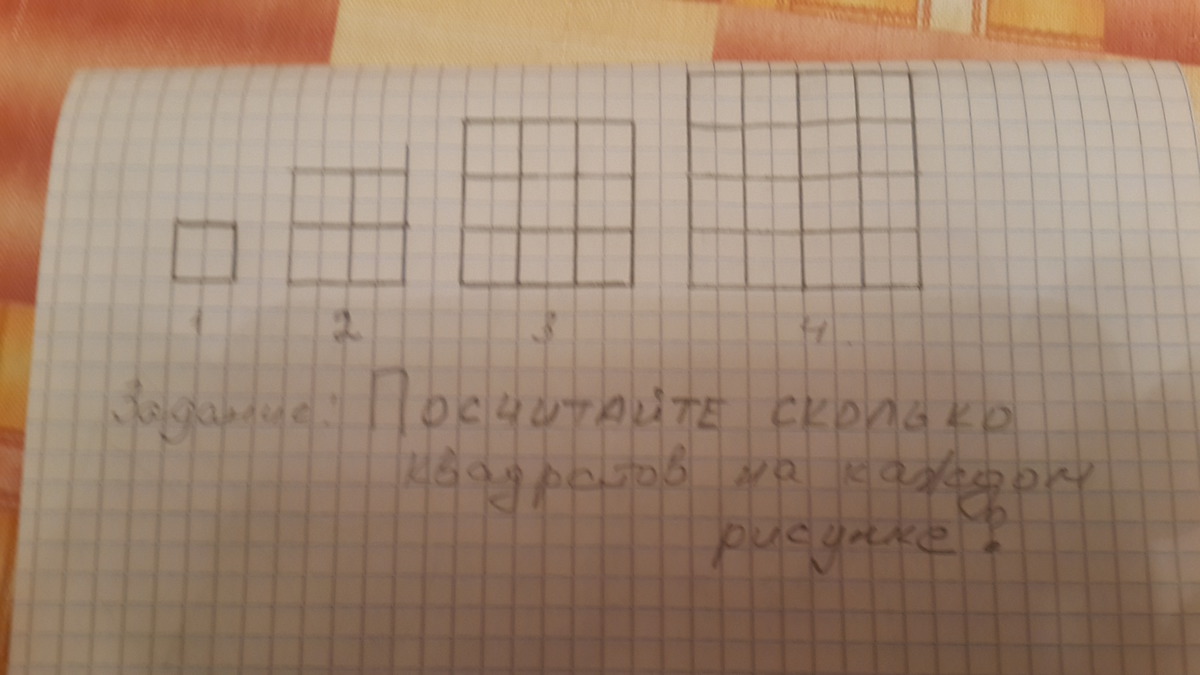 1 2 3 4
Задание: Посчитайте сколько
квадратов на каждом
рисунке?